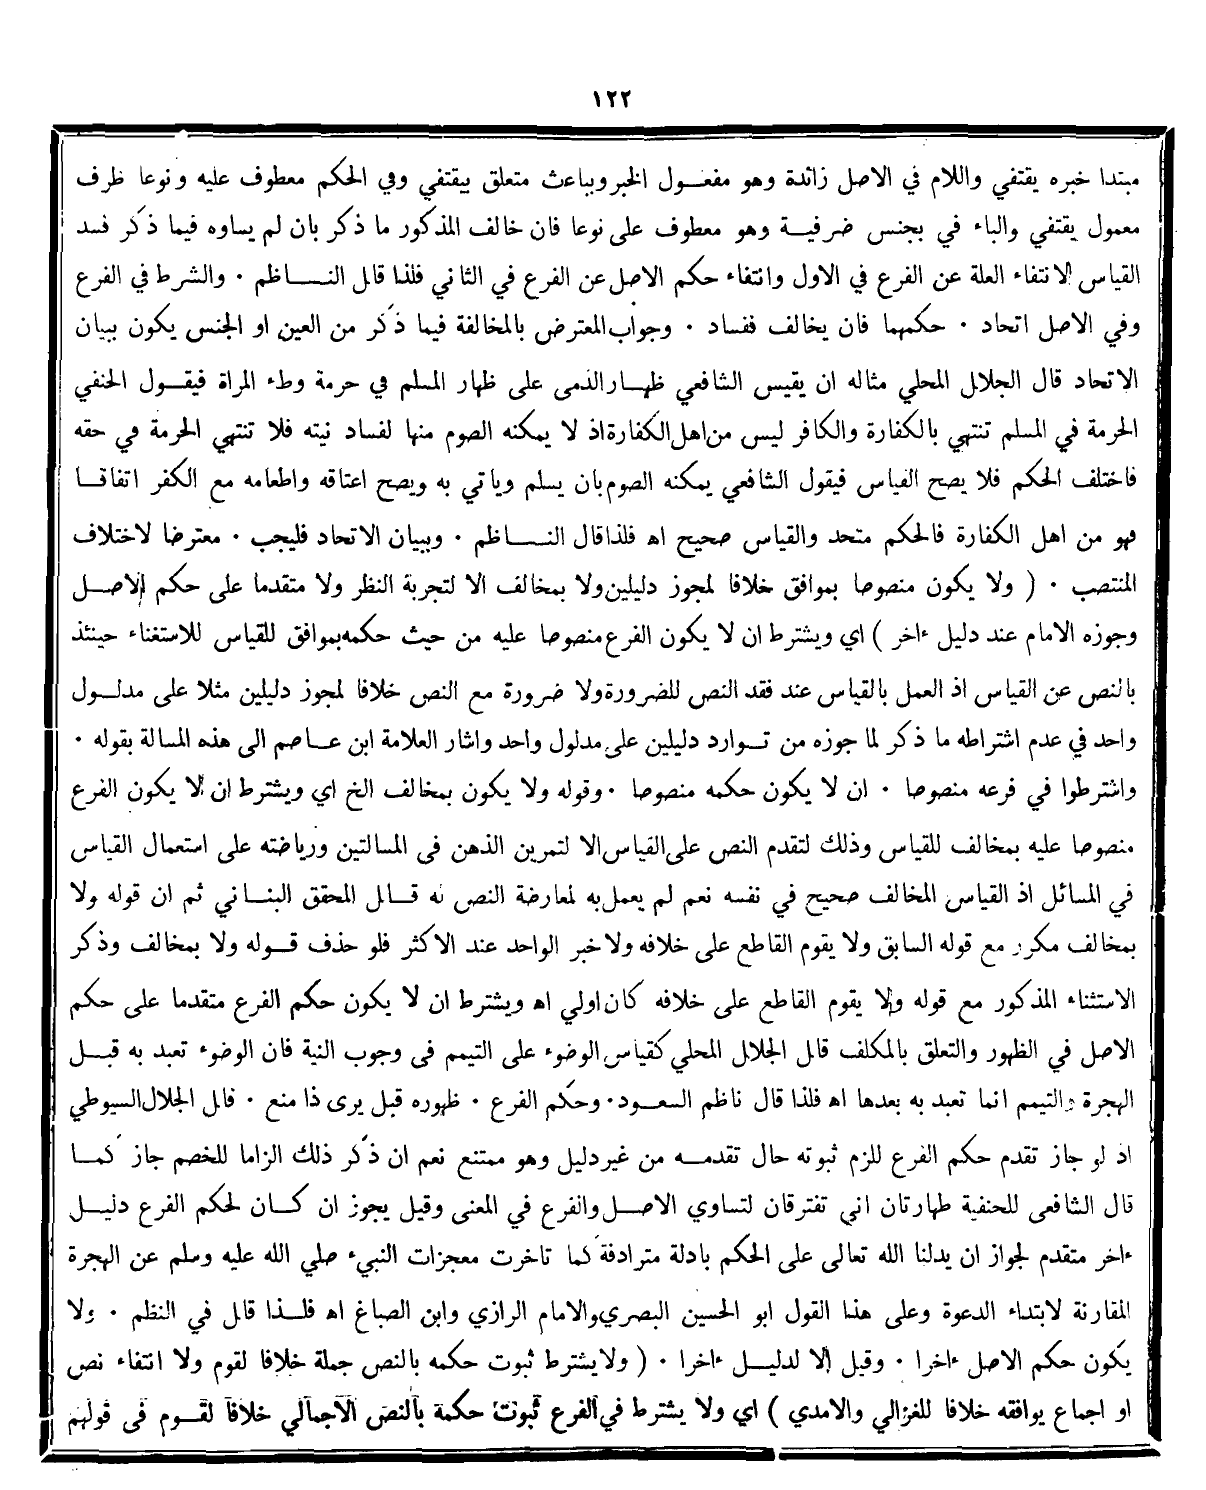 ١٢٢
مبتدا خبره يقتفي واللام في الاصل زائدة وهو مفعـــول الخبر وبباعث متعلق بيقتفي وفي الحكم معطوف عليه ونوعا ظرف
معمول يقتفي والباء في بجنس ضرفيـــة وهو معطوف على نوعا فان خالف المذكور ما ذكر بان لم يساوه فيما ذكر فسد
القياس لانتفاء العلة عن الفرع في الاول وانتفاء حكم الاصل عن الفرع في الثاني فلذا قال النـــاظم ٠ والشرط في الفرع
وفي الاصل اتحاد ٠ حكمهما فان يخالف ففساد ٠ وجواب المعترض بالمخالفة فيما ذكر من العين او الجنس يكون ببيان
الاتحاد قال الجلال المحلي مثاله ان يقيس الشافعي ظهـار الذمى على ظهار المسلم في حرمة وطء المراة فيقـــول الحنفي
الحرمة في المسلم تنتهي بالكفارة والكافر ليس من اهل الكفارة اذ لا يمكنه الصوم منها لفساد نيته فلا تنتهي الحرمة في حقه
فاختلف الحكم فلا يصح القياس فيقول الشافعي يمكنه الصوم بان يسلم وياتي به ويصح اعتاقه واطعامه مع الكفر اتفاقـــا
فهو من اهل الكفارة فالحكم متحد والقياس صحيح اه فلذا قال النـــاظم ٠ وببيان الاتحاد فليجب ٠ معترضا لاختلاف
المنتصب ٠ ( ولا يكون منصوصا بموافق خلافا لمجوز دليلين ولا بمخالف الا لتجربة النظر ولا متقدما على حكم الاصـــل
وجوزه الامام عند دليل ءاخر ) اي ويشترط ان لا يكون الفرع منصوصا عليه من حيث حكمه بموافق للقياس للاستغناء حينئذ
بالنص عن القياس اذ العمل بالقياس عند فقد النص للضرورة ولا ضرورة مع النص خلافا لمجوز دليلين مثلا على مدلـــول
واحد في عدم اشتراطه ما ذكر لما جوزه من تـــوارد دليلين على مدلول واحد واشار العلامة ابن عـــاصم الى هذه المسالة بقوله ٠
واشترطوا في فرعه منصوصا ٠ ان لا يكون حكمه منصوصا ٠ وقوله ولا يكون بمخالف الخ اي ويشترط ان لا يكون الفرع
منصوصا عليه بمخالف للقياس وذلك لتقدم النص على القياس الا لتمرين الذهن فى المسالتين ورياضته على استعمال القياس
في المسائل اذ القياس المخالف صحيح في نفسه نعم لم يعمل به لمعارضة النص له قـــال المحقق البنـــاني ثم ان قوله ولا
بمخالف مكرر مع قوله السابق ولا يقوم القاطع على خلافه ولا خبر الواحد عند الاكثر فلو حذف قـــوله ولا بمخالف وذكر
الاستثناء المذكور مع قوله ولا يقوم القاطع على خلافه كان اولي اه ويشترط ان لا يكون حكم الفرع متقدما على حكم
الاصل في الظهور والتعلق بالمكلف قال الجلال المحلي كقياس الوضوء على التيمم فى وجوب النية فان الوضوء تعبد به قبـــل
الهجرة والتيمم انما تعبد به بعدها اه فلذا قال ناظم السعـــود ٠ وحكم الفرع ٠ ظهوره قبل يرى ذا منع ٠ قال الجلال السيوطي
اذ لو جاز تقدم حكم الفرع للزم ثبوته حال تقدمـــه من غير دليل وهو ممتنع نعم ان ذكر ذلك الزاما للخصم جاز كمـــا
قال الشافعى للحنفية طهارتان اني تفترقان لتساوي الاصـــل والفرع في المعنى وقيل يجوز ان كـــان لحكم الفرع دليـــل
ءاخر متقدم لجواز ان يدلنا الله تعالى على الحكم بادلة مترادفة كما تاخرت معجزات النبيء صلي الله عليه وسلم عن الهجرة
المقارنة لابتداء الدعوة وعلى هذا القول ابو الحسين البصري والامام الرازي وابن الصباغ اه فلـــذا قال في النظم ٠ ولا
يكون حكم الاصل ءاخرا ٠ وقيل الا لدليـــل ءاخرا ٠ ( ولا يشترط ثبوت حكمه بالنص جملة خلافا لقوم ولا انتفاء نص
او اجماع يوافقه خلافا للغزالي والامدي ) اي ولا يشترط في الفرع ثبوت حكمة بالنص الاجمالي خلافا لقـــوم فى قولهم